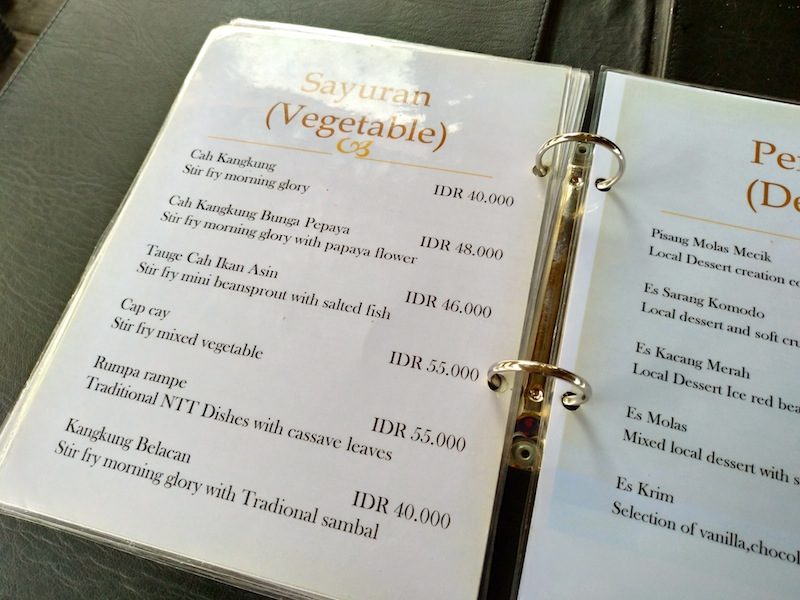 Sayuran
(Vegetable)
Cah Kangkung
Stir fry morning glory
IDR 40.000
Cah Kangkung Bunga Pepaya
Stir fry morning glory with papaya flower
IDR 48.000
Tauge Cah Ikan Asin
Stir fry mini beansprout with salted fish
IDR 46.000
Cap cay
Stir fry mixed vegetable
IDR 55.000
Rumpa rampe
Traditional NTT Dishes with cassave leaves
IDR 55.000
Kangkung Belacan
Stir fry morning glory with Tradional sambal
IDR 40.000
Pisang Molas Mecik
Local Dessert creation
Es Sarang Komodo
Local dessert and soft
Es Kacang Merah
Local Dessert Ice red
Es Molas
Mixed local dessert with
Es Krim
Selection of vanilla,